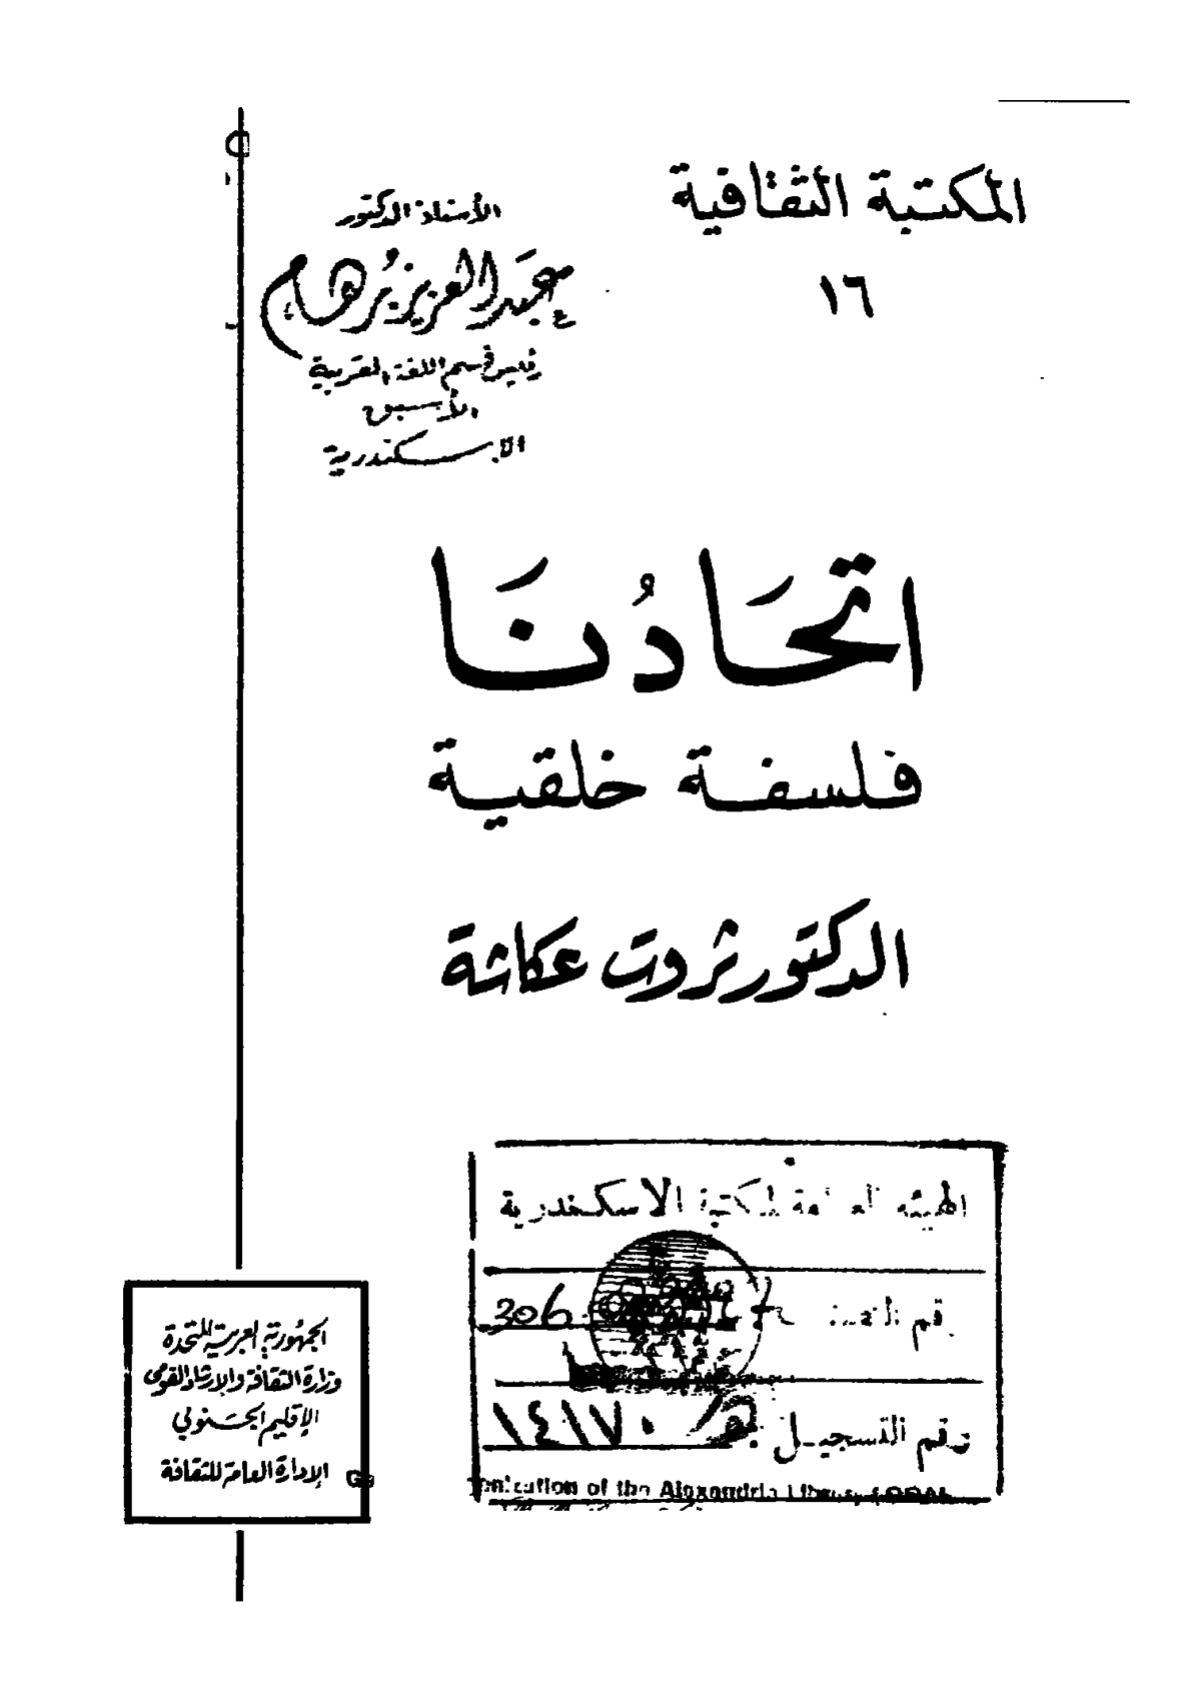 المكتبة الثقافية
١٦
الأستاذ الدكتور
عبد العزيز برهام
رئيس قسم اللغة العربية
الأسبق
الاسكندرية
اتحَادُنَا
فلسفة خلقية
الدكتور ثروت عكاشة
الهيئة العامة لمكتبة الاسكندرية
306
رقم التسجيل ١٤١٧٠
of the Alexandria Library
الجمهورية العربية المتحدة
وزارة الثقافة والإرشاد القومي
الإقليم الجنوبي
الإدارة العامة للثقافة